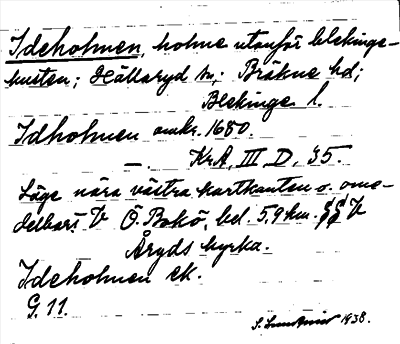 Ideholmen, holme utanför blekinge-
kusten; Hällaryd sn; Bräkne hd;
Blekinge l.
Idholmen omkr. 1680.
—. KrA, III, D, 35.
Läge nära västra kartkanten o. ome-
delbart V Ö. Bokö, bel. 5,9 km. SSV
Åryds kyrka.
Ideholmen ek.
G. 11.
S. 1938.